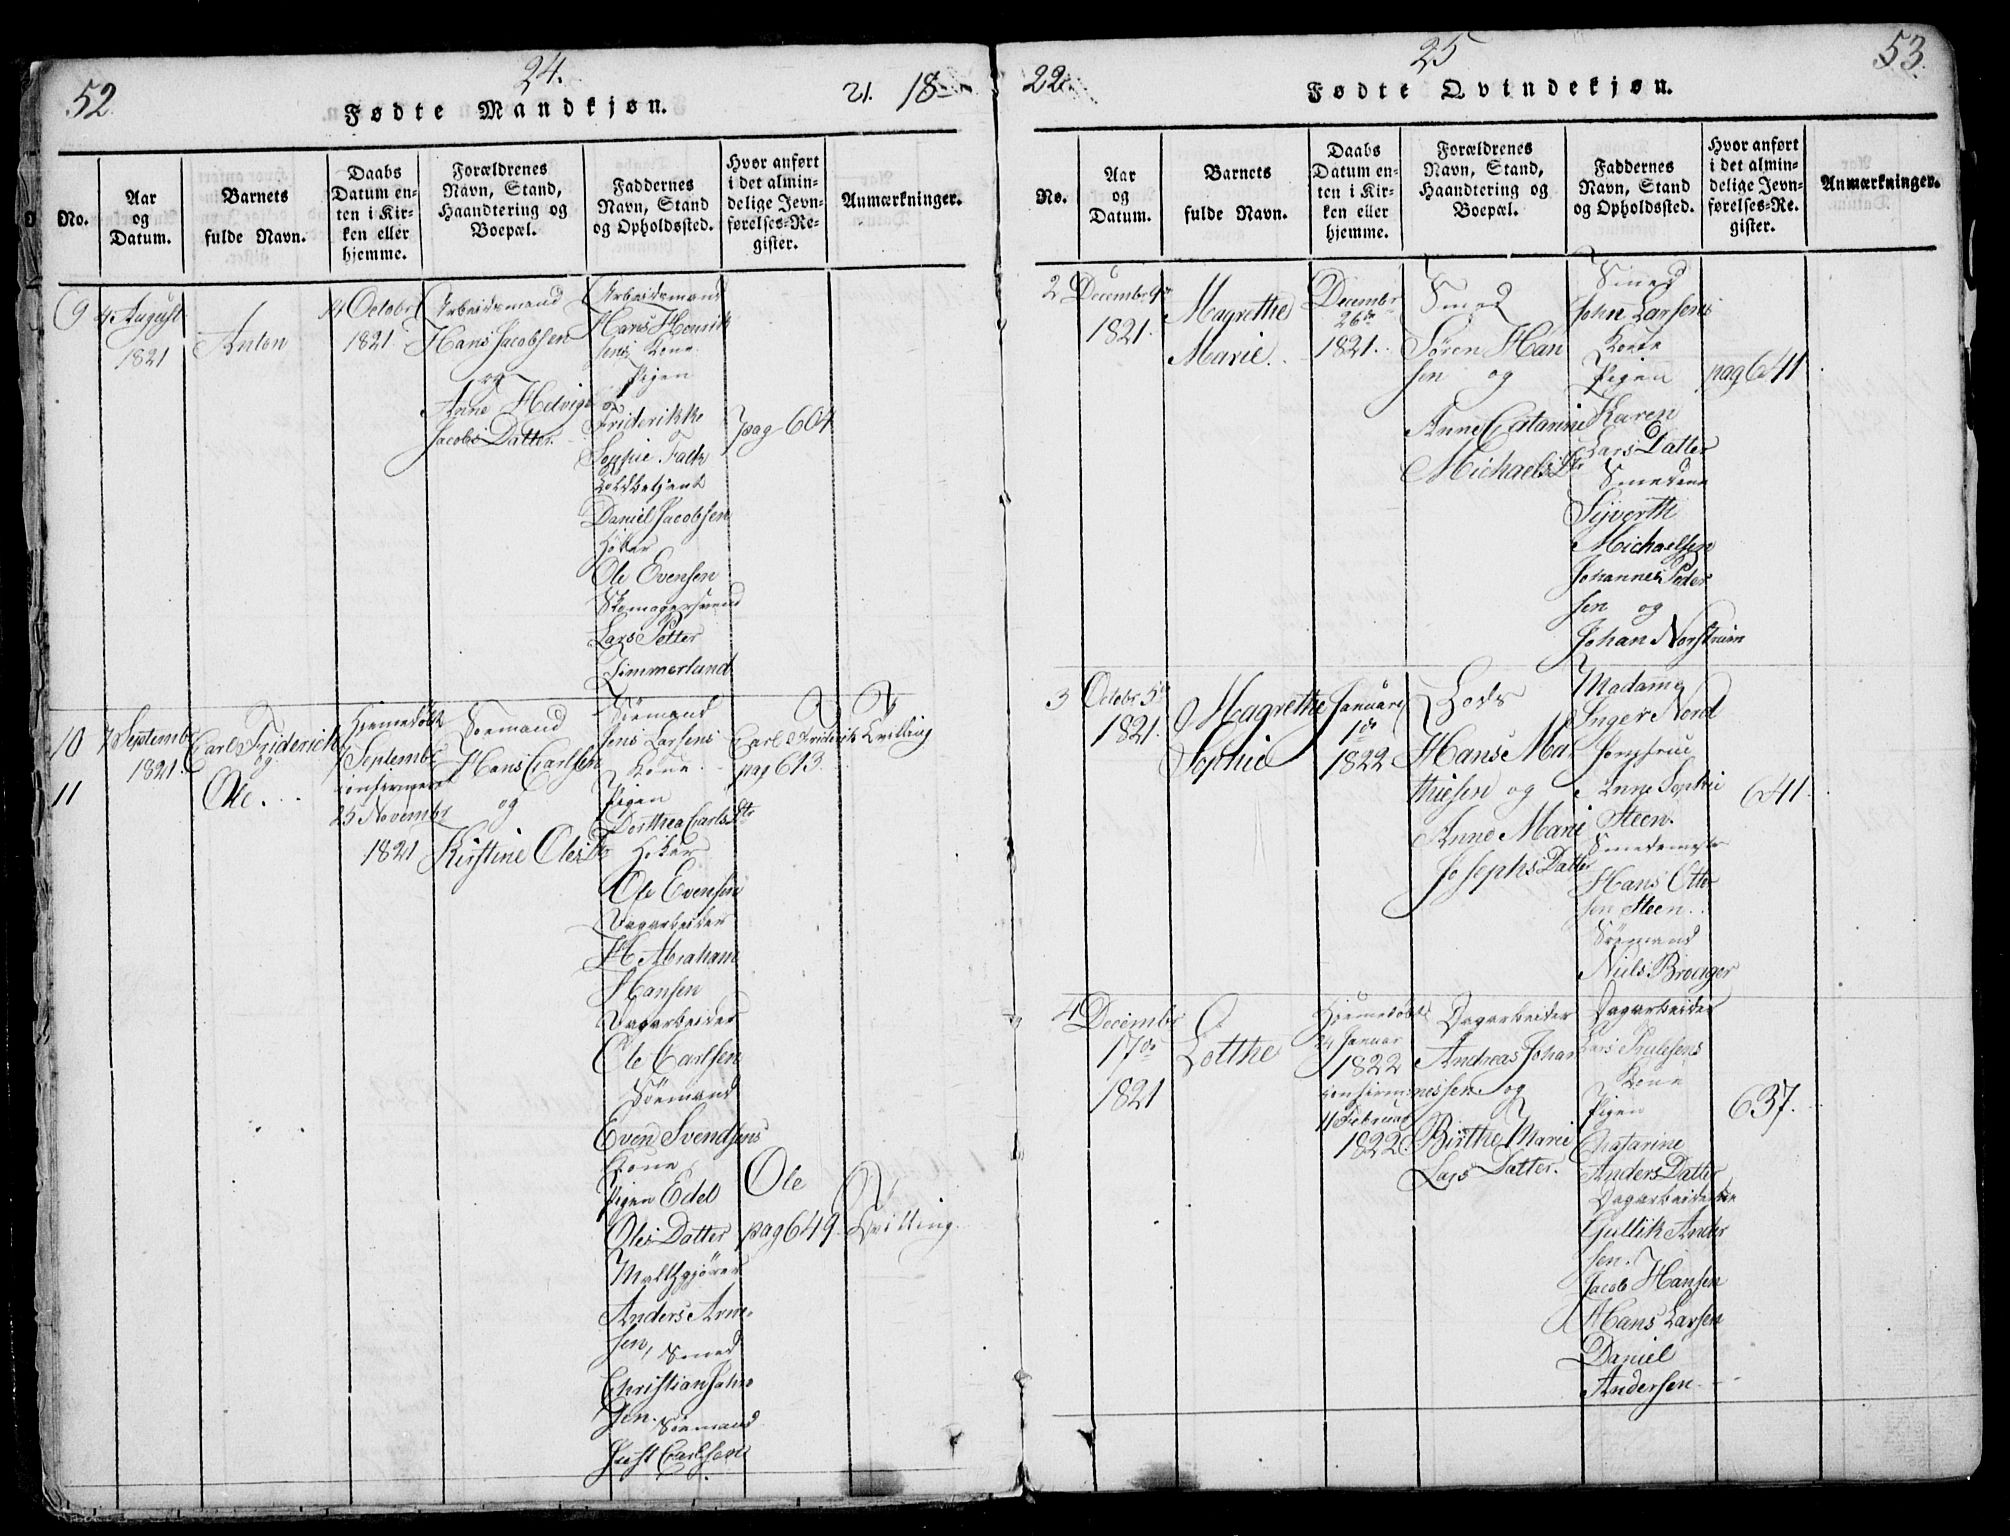 52.
24.
21. 18
Fødte Mandkjøn.
No.
Aar
og
Datum.
Barnets
fulde Navn.
Daabs
Datum en-
ten i Kir-
ken eller
hjemme.
Forældrenes
Navn, Stand,
Haandtering og
Boepæl.
Faddernes
Navn, Stand
og Opholdssted.
Hvor anført
i det almin-
delige Jevn-
førelses-Re-
gister.
Anmærkninger.
9
4 August
1821
Anton
14 Octobr
1821.
Arbeidsmand
Hans Jacobsen
og
Anne Hedvig
Jacobs Datter.
Arbeidsmand
Hans Henrik
sens Kone
Pigen
Friderikke
Sophie Falk
Toldbetjent
Daniel Jacobsen
Høker
Ole Evensen
Skomagersvend
Lars Petter
Zimmerlund
pag 604
10
11
7 Septemb
1821.
Carl Friderich
og
Ole.
Hiemedøbt
7 Septembr
confirmeret
25 Novembr
1821
Søemand
Hans Carlsen
og
Kirstine Oles Dtr
Søemand
Jens Larsens
Kone
Pigen
Dorthea Carls Dtr
Høker
Ole Evensen
Dagarbeider
H Abraham
Hansen
Dagarbeider
Ole Carlsen
Søemand
Even Svendsens
Kone
Pigen Edel
Oles Datter
Maltgjører
Anders Arne-
sen, Smed
Christian Johan
sen. Søemand
Just Carlsen
Carl Friderik
pag 613.
Tvilling
Ole
pag 649
Tvilling.
22.
25
53.
Fødte Qvindekjøn.
No.
Aar
og
Datum.
Barnets
fulde Navn.
Daabs
Datum en-
ten i Kir-
ken eller
hjemme.
Forældrenes
Navn, Stand,
Haandtering og
Boepæl.
Faddernes
Navn, Stand
og Opholdssted.
Hvor anført
i det almin-
delige Jevn-
førelses-Re-
gister.
Anmærkninger.
2
Decembr 9de
1821.
Magrethe
Marie.
Decembr
26de
1821.
Smed
Søren Han
sen og
Anne Catarine
Michaels Dtr
Smed
John Larsens
Kone
Pigen
Karen
Lars Datter
Smedene
Syverth
Michaelsen
Johannes Peder
sen og
Johan Norstrum
pag 641
3
Octobr 5te
1821.
Magrethe
Sophie
Januari
1de
1822
Lods
Hans Ma
thiesen og
Anne Marie
Josephs Datter
Madame
Inger Nord
Jomfrue
Anne Sophie
Steen.
Smedemester
Hans Otter
sen Steen.
Søemand
Niels Broeger
641.
4
Decembr
17de
1821
Lotthe
Hjemedøbt
Januar
1822
confirm
11 Februar
1822.
Dagarbeider
Andreas Johan
nessen og
Birthe Marie
Lars Datter.
Dagarbeider
Lars Trulsens
Kone
Pigen
Chatarine
Anders Datter
Dagarbeiderne
Gullik Ander
sen.
Jacob Hansen
Hans Larsen
Daniel
Andersen.
637.